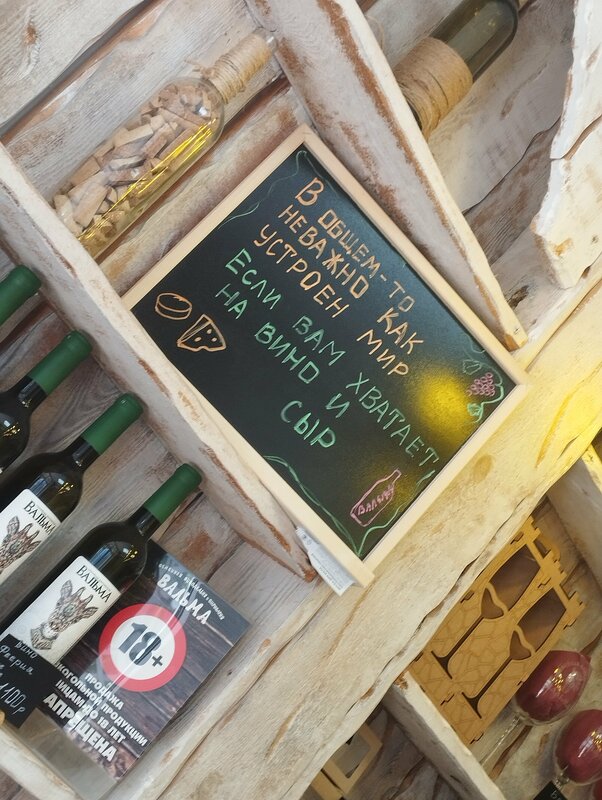 В ОБЩЕМ-ТО
НЕВАЖНО КАК
УСТРОЕН МИР
ЕСЛИ ВАМ ХВАТАЕТ
НА ВИНО И
СЫР
ВАЛЬМА
ВАЛЬМА
ВАЛЬМА
18+
ПРОДАЖА
АЛКОГОЛЬНОЙ ПРОДУКЦИИ
ЛИЦАМ ДО 18 ЛЕТ
ЗАПРЕЩЕНА
ВИНО
Феерия
1100р